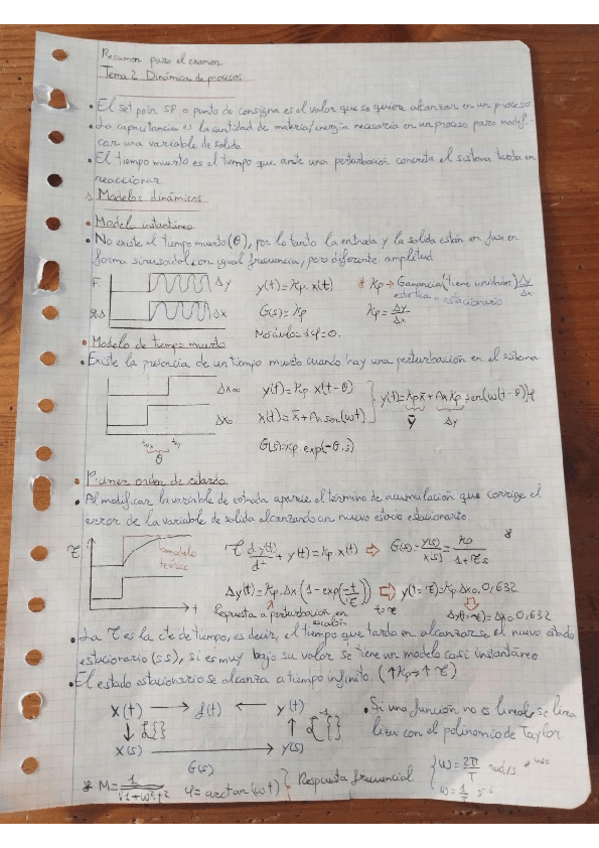 Resumen para el examen
Tema 2: Dinámica de procesos
• El set poin SP o punto de consigna es el valor que se quiere alcanzar en un proceso
• La capacitancia es la cantidad de materia/energía necesaria en un proceso para modifi-
car una variable de salida
• El tiempo muerto es el tiempo que ante una perturbación concreta el sistema tarda en
reaccionar
Modelos dinámicos
• Modelo instantáneo
• No existe el tiempo muerto (θ), por lo tanto la entrada y la salida están en fase en
forma sinusoidal con igual frecuencia, pero diferente amplitud
F Δy y(t) = Kp · x(t) * Kp → Ganancia (tiene unidades) Δy/Δx
estática o estacionario
Δx G(s) = Kp Kp = Δy/Δx
• Modelo de tiempo muerto
• Existe la presencia de un tiempo muerto cuando hay una perturbación en el sistema
y(t) = Kp x(t-θ)
x(t) = x̄ + Ax sen(wt)
y(t) = Kp x̄ + Ax Kp sen(w(t-θ))
ȳ Δy
θ G(s) = Kp · exp(-θ·s)
• Primer orden de retardo
• Al modificar la variable de entrada aparece el término de acumulación que corrige el
error de la variable de salida alcanzando un nuevo estado estacionario.
modelo
teórico
τ dy(t)/dt + y(t) = Kp x(t) ⇒ G(s) = y(s)/x(s) = Kp/1+τs
Δy(t) = Kp · Δx (1 - exp(-t/τ)) ⇒ y(t=τ) = Kp Δx · 0,632
t
Respuesta a perturbación en
escalón
t=τ
• La τ es la cte de tiempo, es decir, el tiempo que tarda en alcanzarse el nuevo estado
estacionario (ss), si es muy bajo su valor se tiene un modelo casi instantáneo
• El estado estacionario se alcanza a tiempo infinito. (↑Kp → ↑τ)
X(t) → f(t) ← y(t)
↓ L{} ↑ L⁻¹{}
X(s) → y(s)
G(s)
• Si una función no es lineal, se linea
liza con el polinomio de Taylor
* M = 1/√1+w²τ² φ = arctan(wτ) } Respuesta frecuencial. { w = 2π/T rad/s
w = 1/T